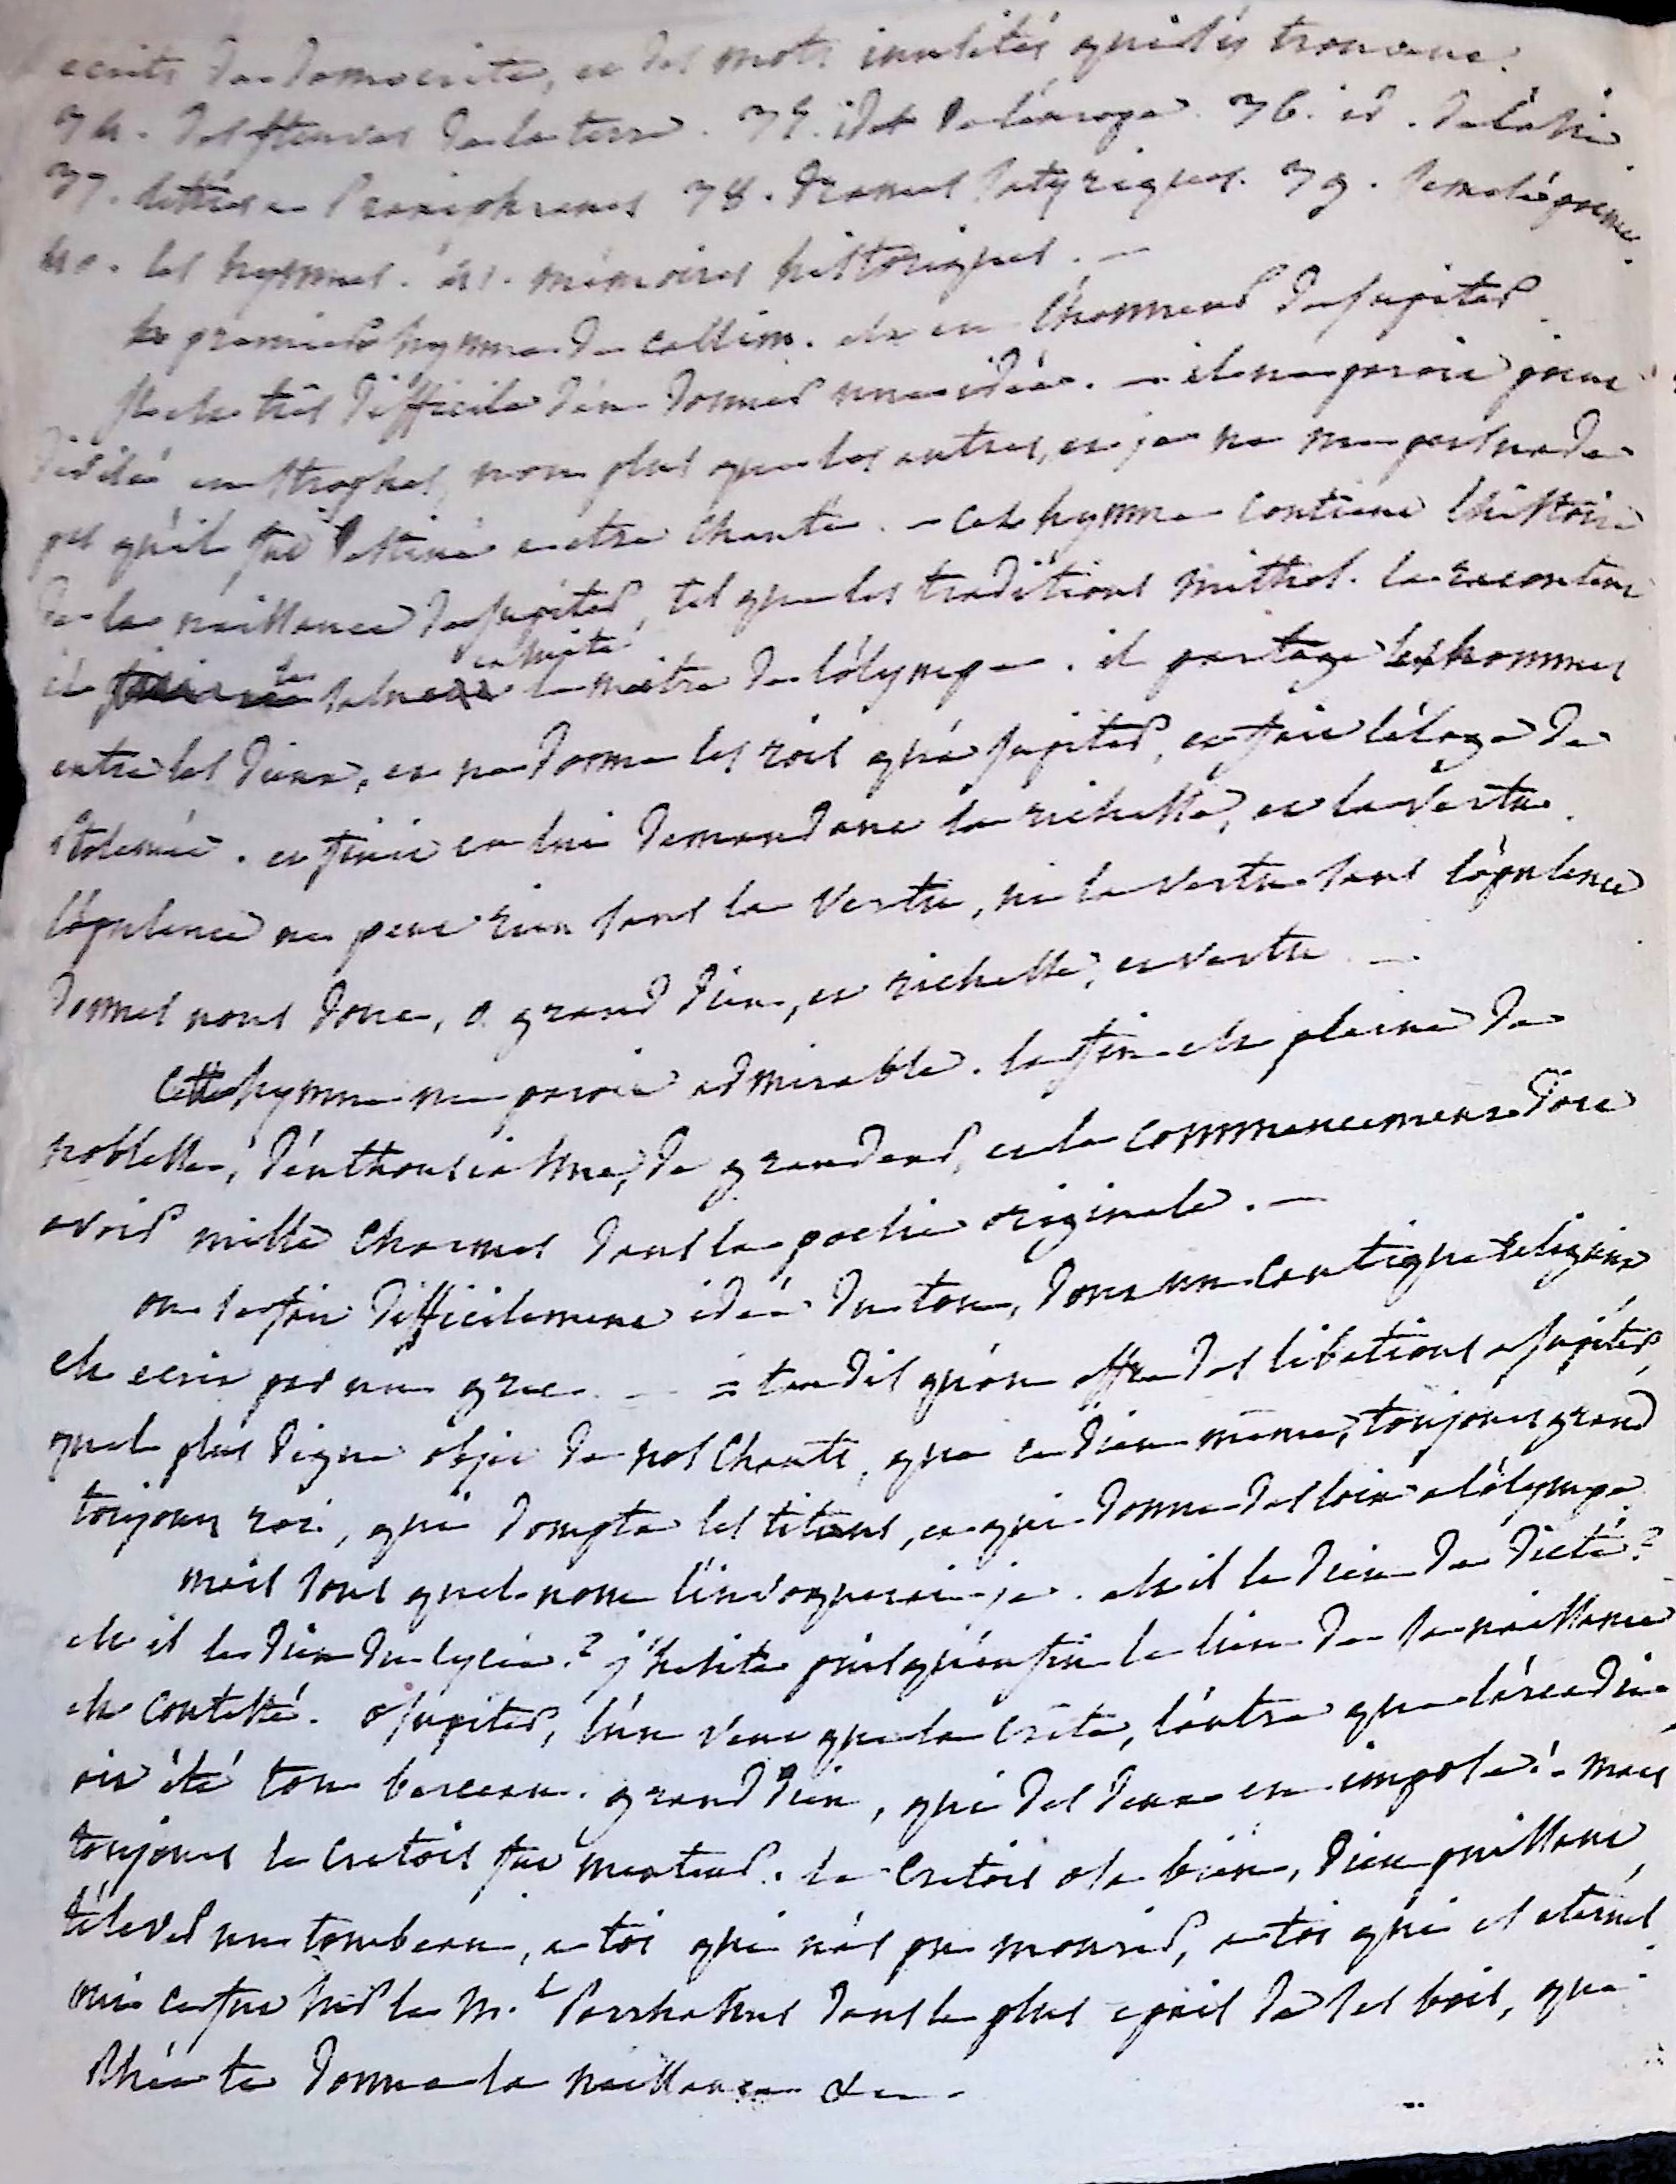 ecrits de Democrite, et des mots inusités qui s'y trouvent.
34. des fleuves de la terre. 35. id. de l'europe. 36. id. de l'asie
37. lettre a Praxiphanes 38. Drames satyriques. 39. Semelé poeme.
40. les hymnes. 41. mémoires historiques. —
le premier hymne de callim. est en l'honneur de Jupiter.
Il est très difficile d'en donner une idée. — il ne paroit point
divisé en strophes, non plus que les autres, et je ne me persuade
pas qu'il fut destiné a etre chanté. — cet hymne contient l'histoire
de la naissance de Jupiter, tel que les traditions mithol. la racontent
il le salue ensuite le maitre de l'olympe. il partage les hommes
entre les dieux, et ne donne les rois qu'a Jupiter, et fait l'éloge de
Ptolemée. et finit en lui demandant la richesse, et la vertu.
l'opulence ne peut rien sans la vertu, ni la vertu sans l'opulence
donnes nous donc, o grand dieu, et richesse, et vertu. —
Cette hymne me paroit admirable. la fin est pleine de
noblesse, d'enthousiasme, de grandeur, et le commencement doit
avoir mille charmes dans la poesie originale. —
on se fait difficilement idée du ton, dont un cantique religieux
est ecrit par un grec. — = tandis qu'on offre des libations a Jupiter,
quel plus digne objet de nos chants, que ce dieu même, toujours grand
toujours roi, qui dompta les titans, et qui donne des loix a l'olympe
mais sous quel nom l'invoquerai-je. est il le dieu de Dicté?
est il le dieu du lycée? j'hesite puisqu'enfin le lieu de sa naissance
est contesté. o Jupiter, l'un veut que la Crete, l'autre que l'arcadie
ait été ton berceau. grand dieu, qui des deux en impose? — mais
toujours le Cretois fut menteur. le Cretois osa bien, dieu puissant,
t'élever un tombeau, a toi qui n'as pu mourir, a toi qui es eternel
oui ce fut sur le M.t Parrhasius dans le plus epais de ses bois, que
Rhéa te donna la naissance &c. —